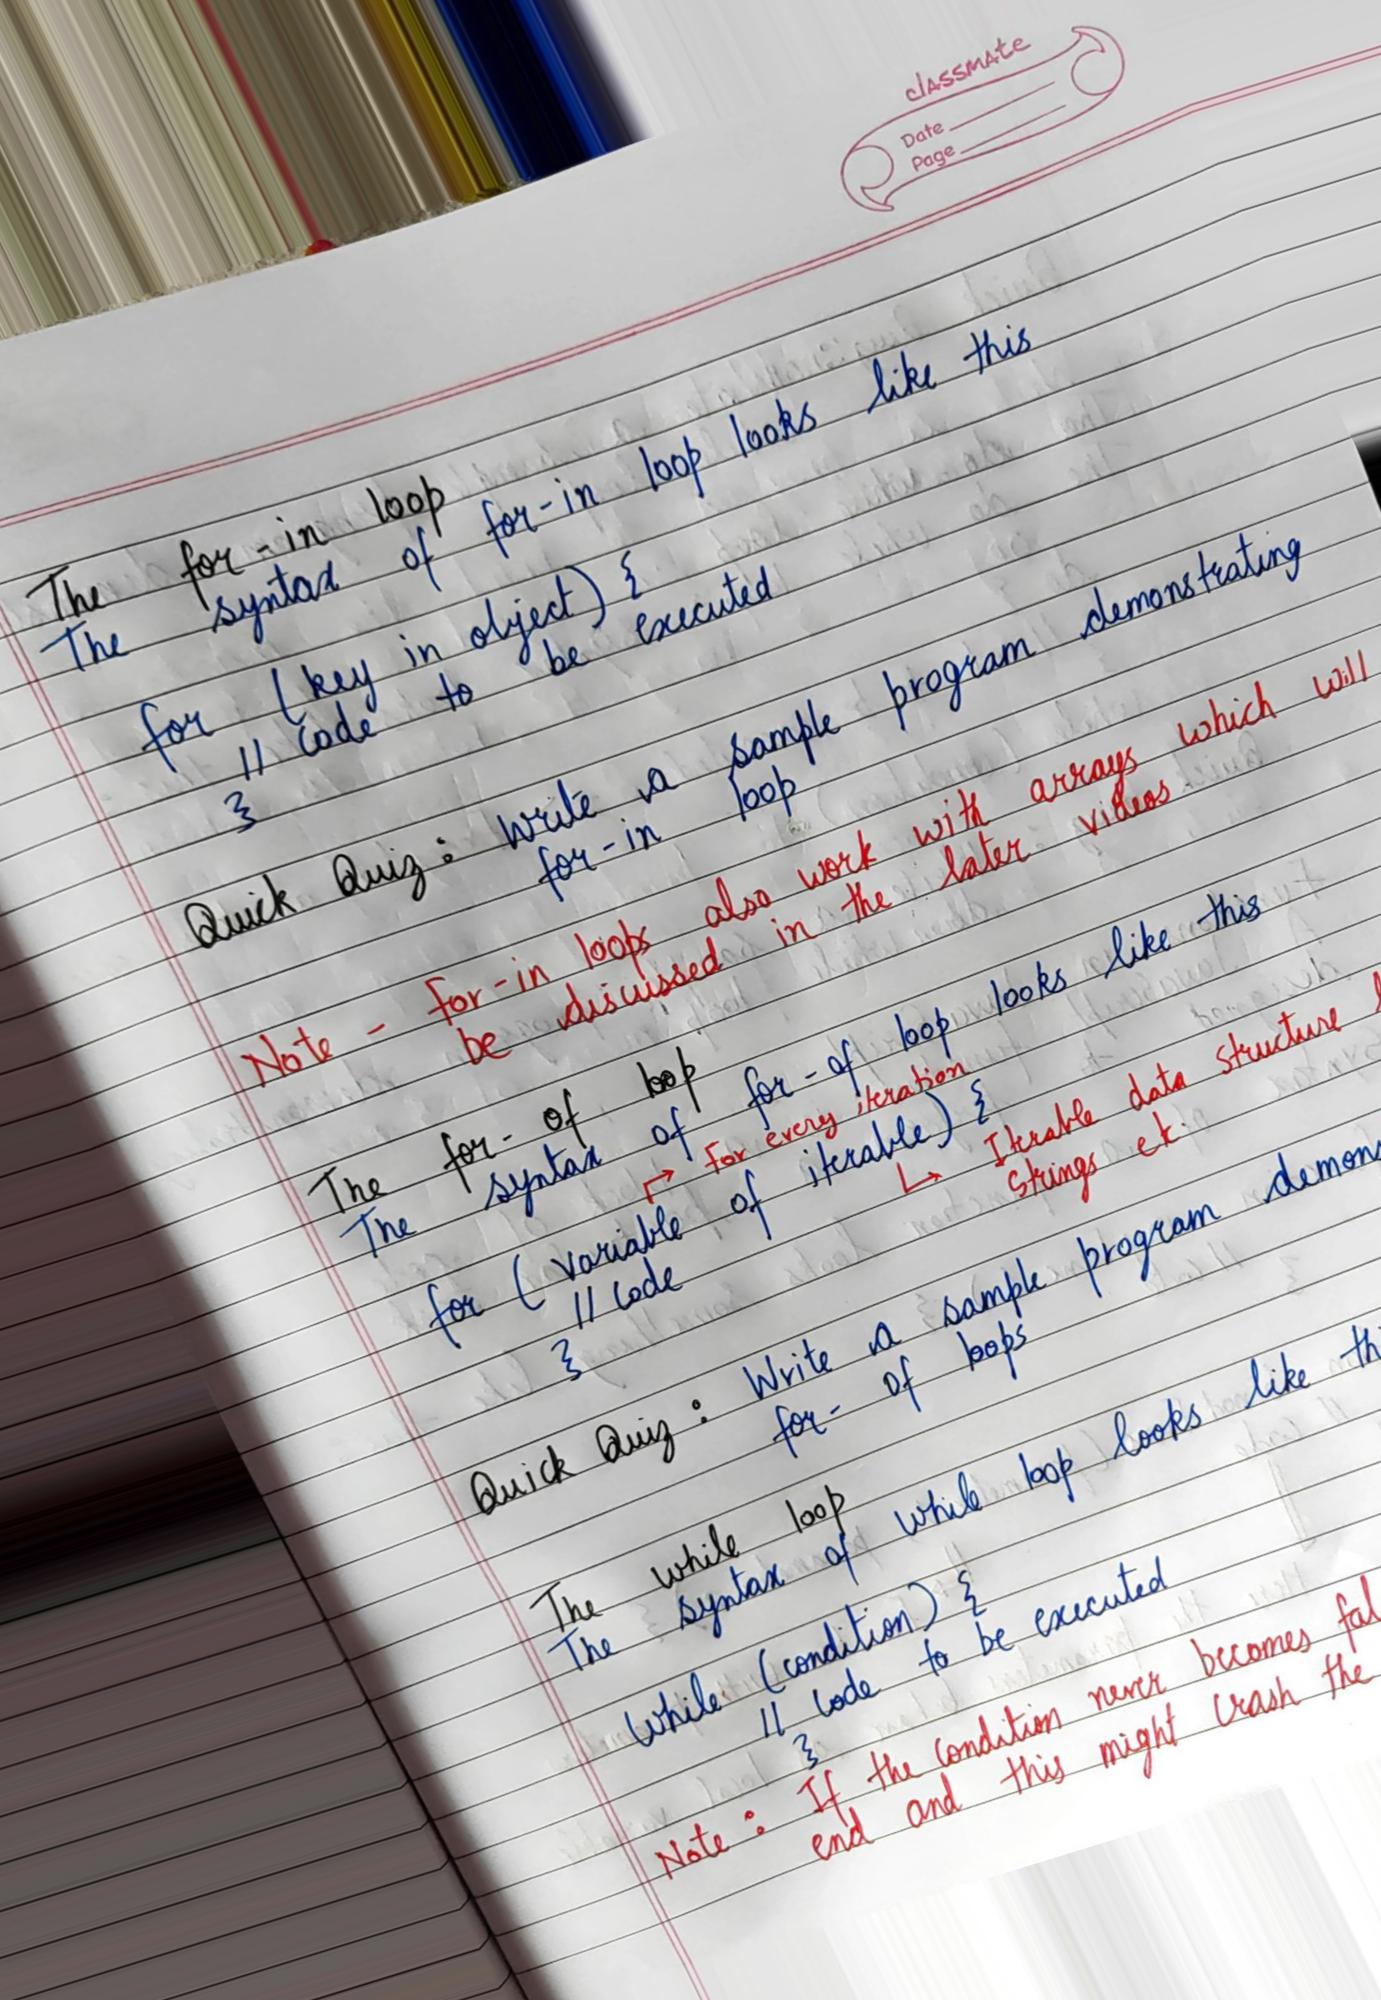 classmate
Date
Page
The for-in loop
The syntax of for-in loop looks like this
for (key in object) {
// code to be executed
}
Quick Quiz: Write a sample program demonstrating
for-in loop
Note - for-in loops also work with arrays which will
be discussed in the later videos
The for-of loop
The syntax of for-of loop looks like this
for every iteration
for (variable of iterable) {
Iterable data structure
// code
strings etc.
}
Quick Quiz: Write a sample program
for-of loops
The while loop
The syntax of while loop looks like
while (condition) {
// code to be executed
}
Note: If the condition never becomes
end and this might crash the